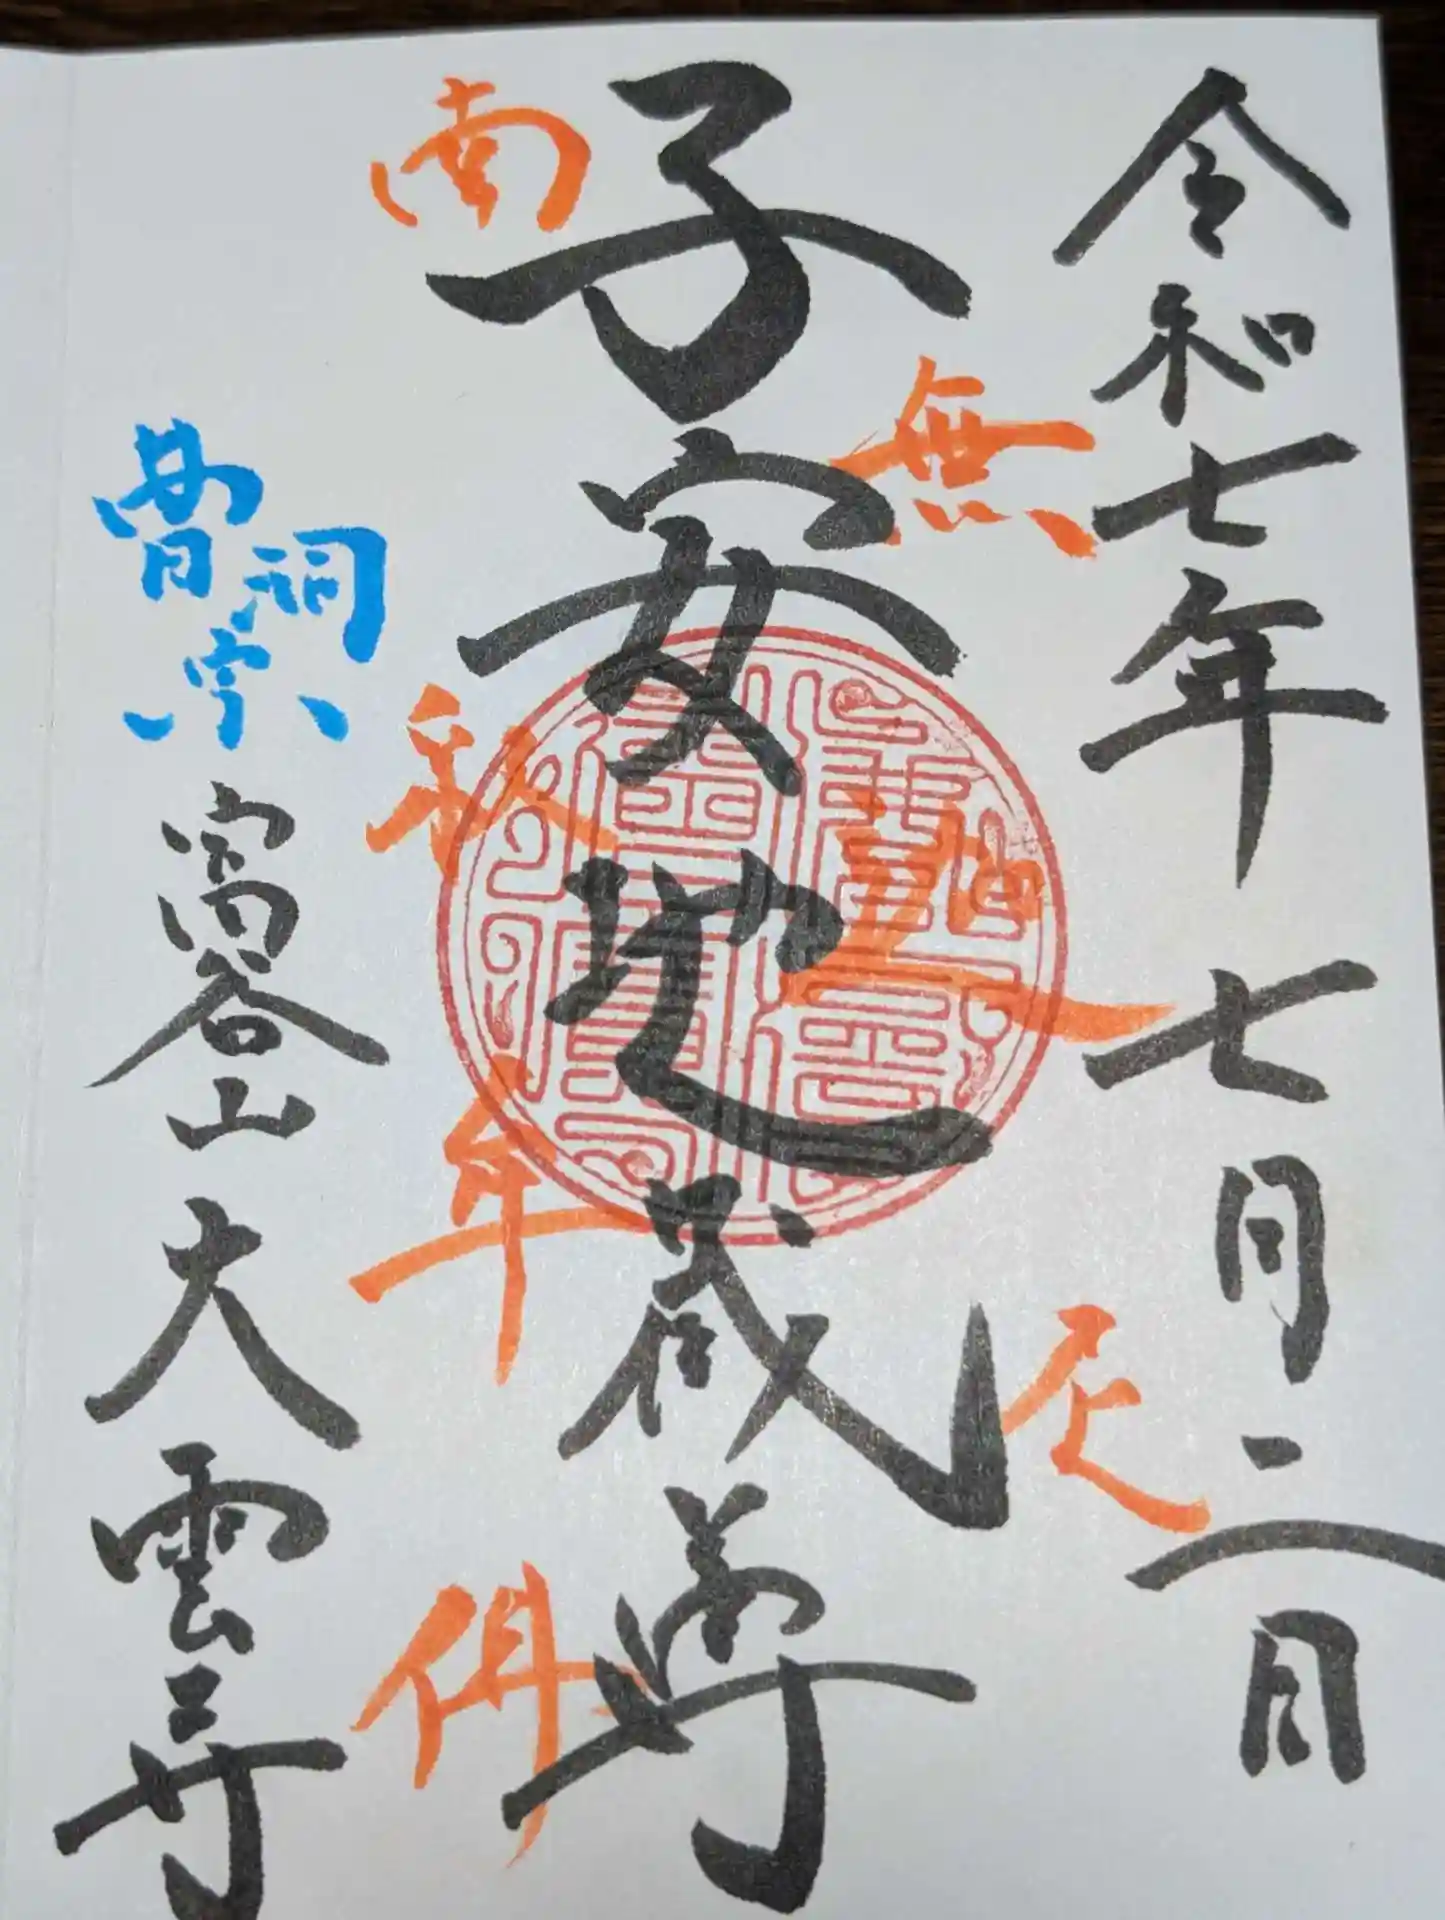 令和七年七月二日
子安地蔵尊
南無
釈迦
牟尼
佛
曹洞宗
富谷山大雲寺